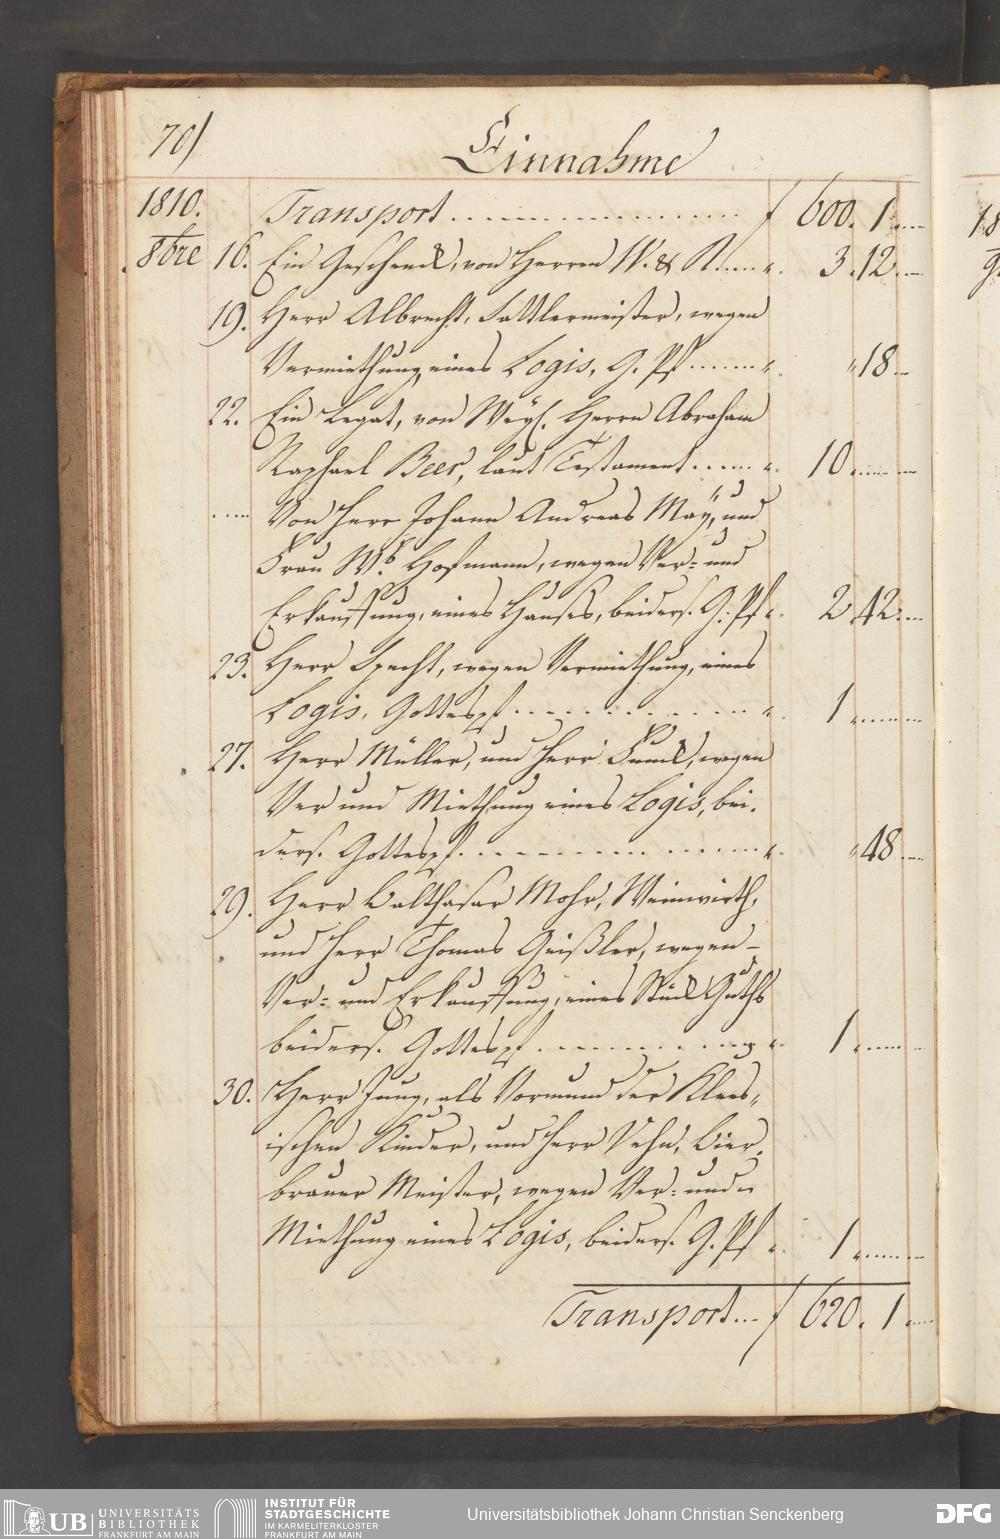 70)
Einnahme
1810. Transport ........ f 600. 1 ....
8bre 16. Ein Geschenck, von Herren W. & R. ..... " 3. 12. ...
19. Herr Albrecht, Sattlermeister, wegen
Vermiethung, eines Logis, G. Pf ....... " " 18 ...
22. Ein Legat, von Weyl. Herrn Abraham
Raphael Beer, laut Testament ...... " 10 ......
..... Von Herr Johann Andreas Maÿ, und
Frau Wb. Hofmann, wegen Ver= und
Erkauffung, eines Hauses, beiders. G. Pf " 2. 42. ...
23. Herr Specht, wegen Vermiethung, eines
Logis, Gottespf ........... " 1 ........
27. Herr Müller, und Herr Funck, wegen
Ver und Miethung eines Logis, bei-
ders. Gottespf ............ " " 48 ....
29. Herr Balthasar Mohr, Weinwirth,
und Herr Thomas Geißler, wegen -
Ver= und Erkauffung, eines Stück Guths
beiders. Gottespf .......... " 1 ......
30. Herr Jung, als Vormund der Klees,,
ischen Kinder, und Herr Vehn, Bier-
brauer Meister, wegen Ver= und
Miethung eines Logis, beiders. G. Pf " 1 ........
Transport ... f 620. 1 .....
UB UNIVERSITÄTS
BIBLIOTHEK
FRANKFURT AM MAIN
INSTITUT FÜR
STADTGESCHICHTE
IM KARMELITERKLOSTER
FRANKFURT AM MAIN
Universitätsbibliothek Johann Christian Senckenberg
DFG